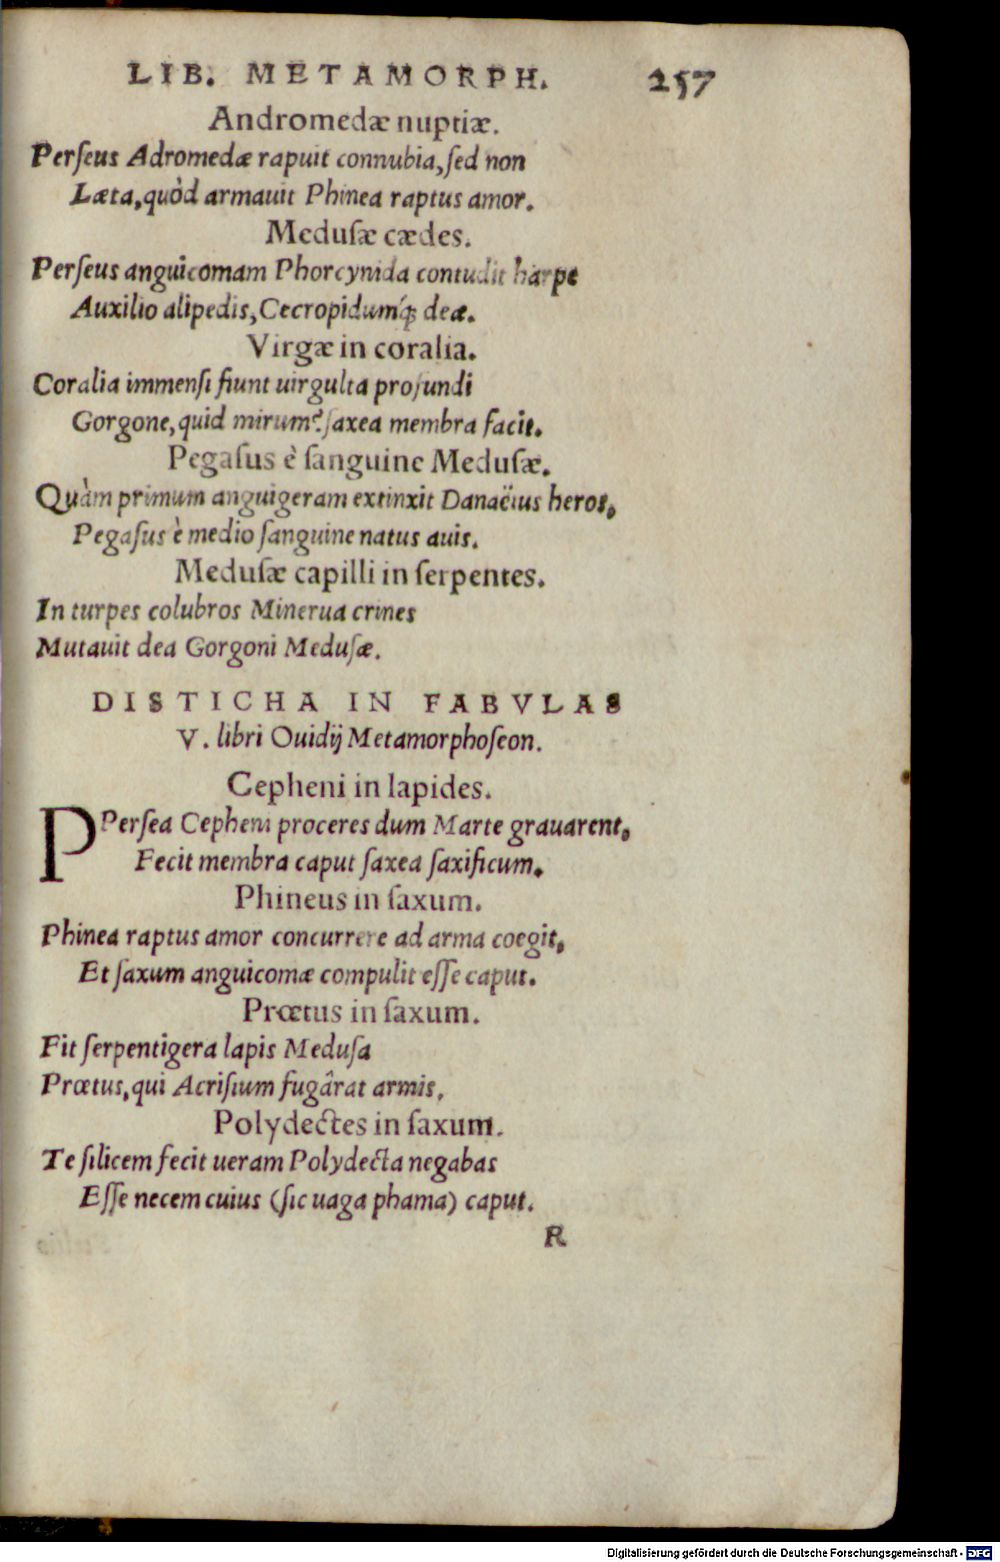 LIB. METAMORPH. 257
Andromedæ nuptiæ.
Perſeus Adromedæ rapuit connubia, ſed non
Læta, quòd armauit Phinea raptus amor.
Meduſæ cædes.
Perſeus anguicomam Phorcynida contudit harpe
Auxilio alipedis, Cecropidumq́; deæ.
Virgæ in coralia.
Coralia immenſi fiunt uirgulta profundi
Gorgone, quid mirum? ſaxea membra facit.
Pegaſus è ſanguine Meduſæ.
Quàm primum anguigeram extinxit Danaëius heros,
Pegaſus è medio ſanguine natus auis.
Meduſæ capilli in ſerpentes.
In turpes colubros Minerua crines
Mutauit dea Gorgoni Meduſæ.
DISTICHA IN FABVLAS
V. libri Ouidij Metamorphoſeon.
Cepheni in lapides.
PPerſea Cepheni proceres dum Marte grauarent,
Fecit membra caput ſaxea ſaxificum.
Phineus in ſaxum.
Phinea raptus amor concurrere ad arma coegit,
Et ſaxum anguicomæ compulit eſſe caput.
Prœtus in ſaxum.
Fit ſerpentigera lapis Meduſa
Prœtus, qui Acriſium fugârat armis.
Polydectes in ſaxum.
Te ſilicem fecit ueram Polydecta negabas
Eſſe necem cuius (ſic uaga phama) caput.
R
Digitalisierung gefördert durch die Deutsche Forschungsgemeinschaft - DFG